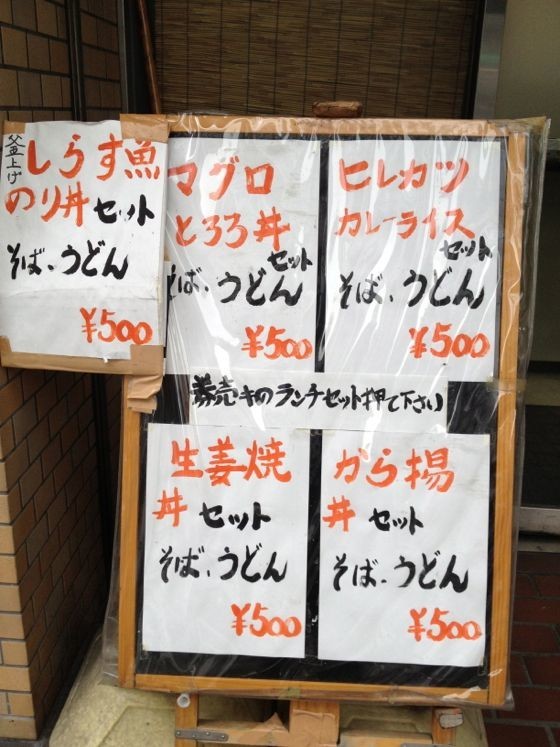 釜上げ
しらす魚
のり丼 セット
そば、うどん
¥500
マグロ
とろろ丼
セット
そば、うどん
¥500
ヒレカツ
カレーライス
セット
そば、うどん
¥500
券売キのランチセット押て下さい
生姜焼
丼 セット
そば、うどん
¥500
から揚
丼 セット
そば、うどん
¥500